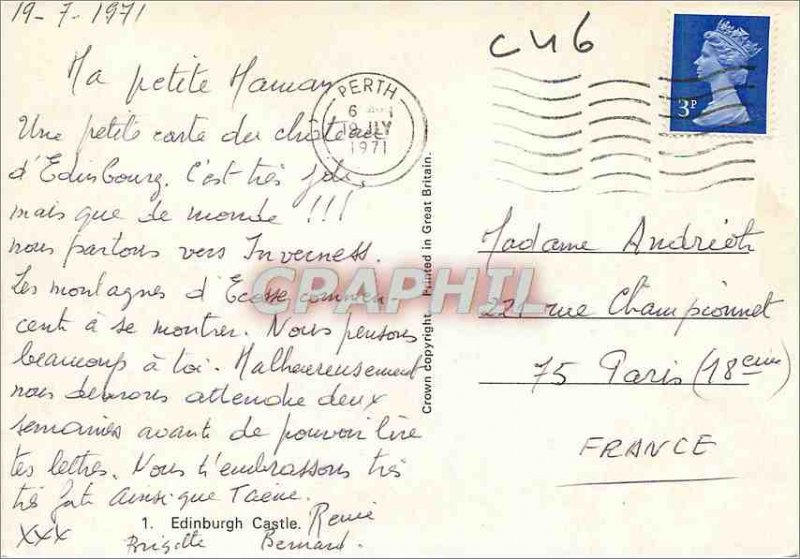 19-7-1971
Ma petite Maman
Une petite carte du château
d'Edinbourg. C'est très joli,
mais que de monde !!!
nous partons vers Inverness.
Les montagnes d'Ecosse commen-
cent à se montrer. Nous pensons
beaucoup à toi. Malheureusement
nous devrons attendre deux
semaines avant de pouvoir lire
tes lettres. Nous t'embrassons très
très fort ainsi que
XXX
Brigitte Bernard.
1. Edinburgh Castle.
Crown copyright Printed in Great Britain.
CPAPHIL
CU6
PERTH
6
19 JLY
1971
3P
Madame
rue Championnet
75 Paris (18ème)
FRANCE